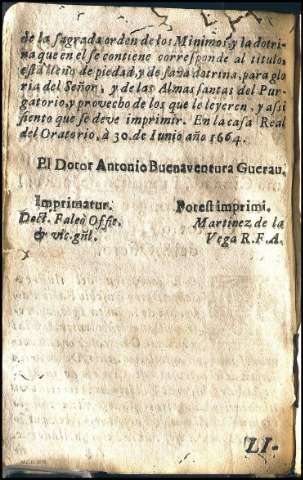 de la sagrada orden de los Minimos, y la dotri-
na que en el se contiene corresponde al titulo,
està lleno de piedad, y de sana dotrina, para glo-
ria del Señor, y de las Almas santas del Pur-
gatorio, y provecho de los que le leyeren, y assi
siento que se deve imprimir. En la casa Real
del Oratorio, à 30. de Iunio año 1664.
El Dotor Antonio Buenaventura Guerau.
Imprimatur.
Doct. Faleò Offic.
& vic. gñl.
Potest imprimi.
Martinez de la
Vega R.F.A.
LI-